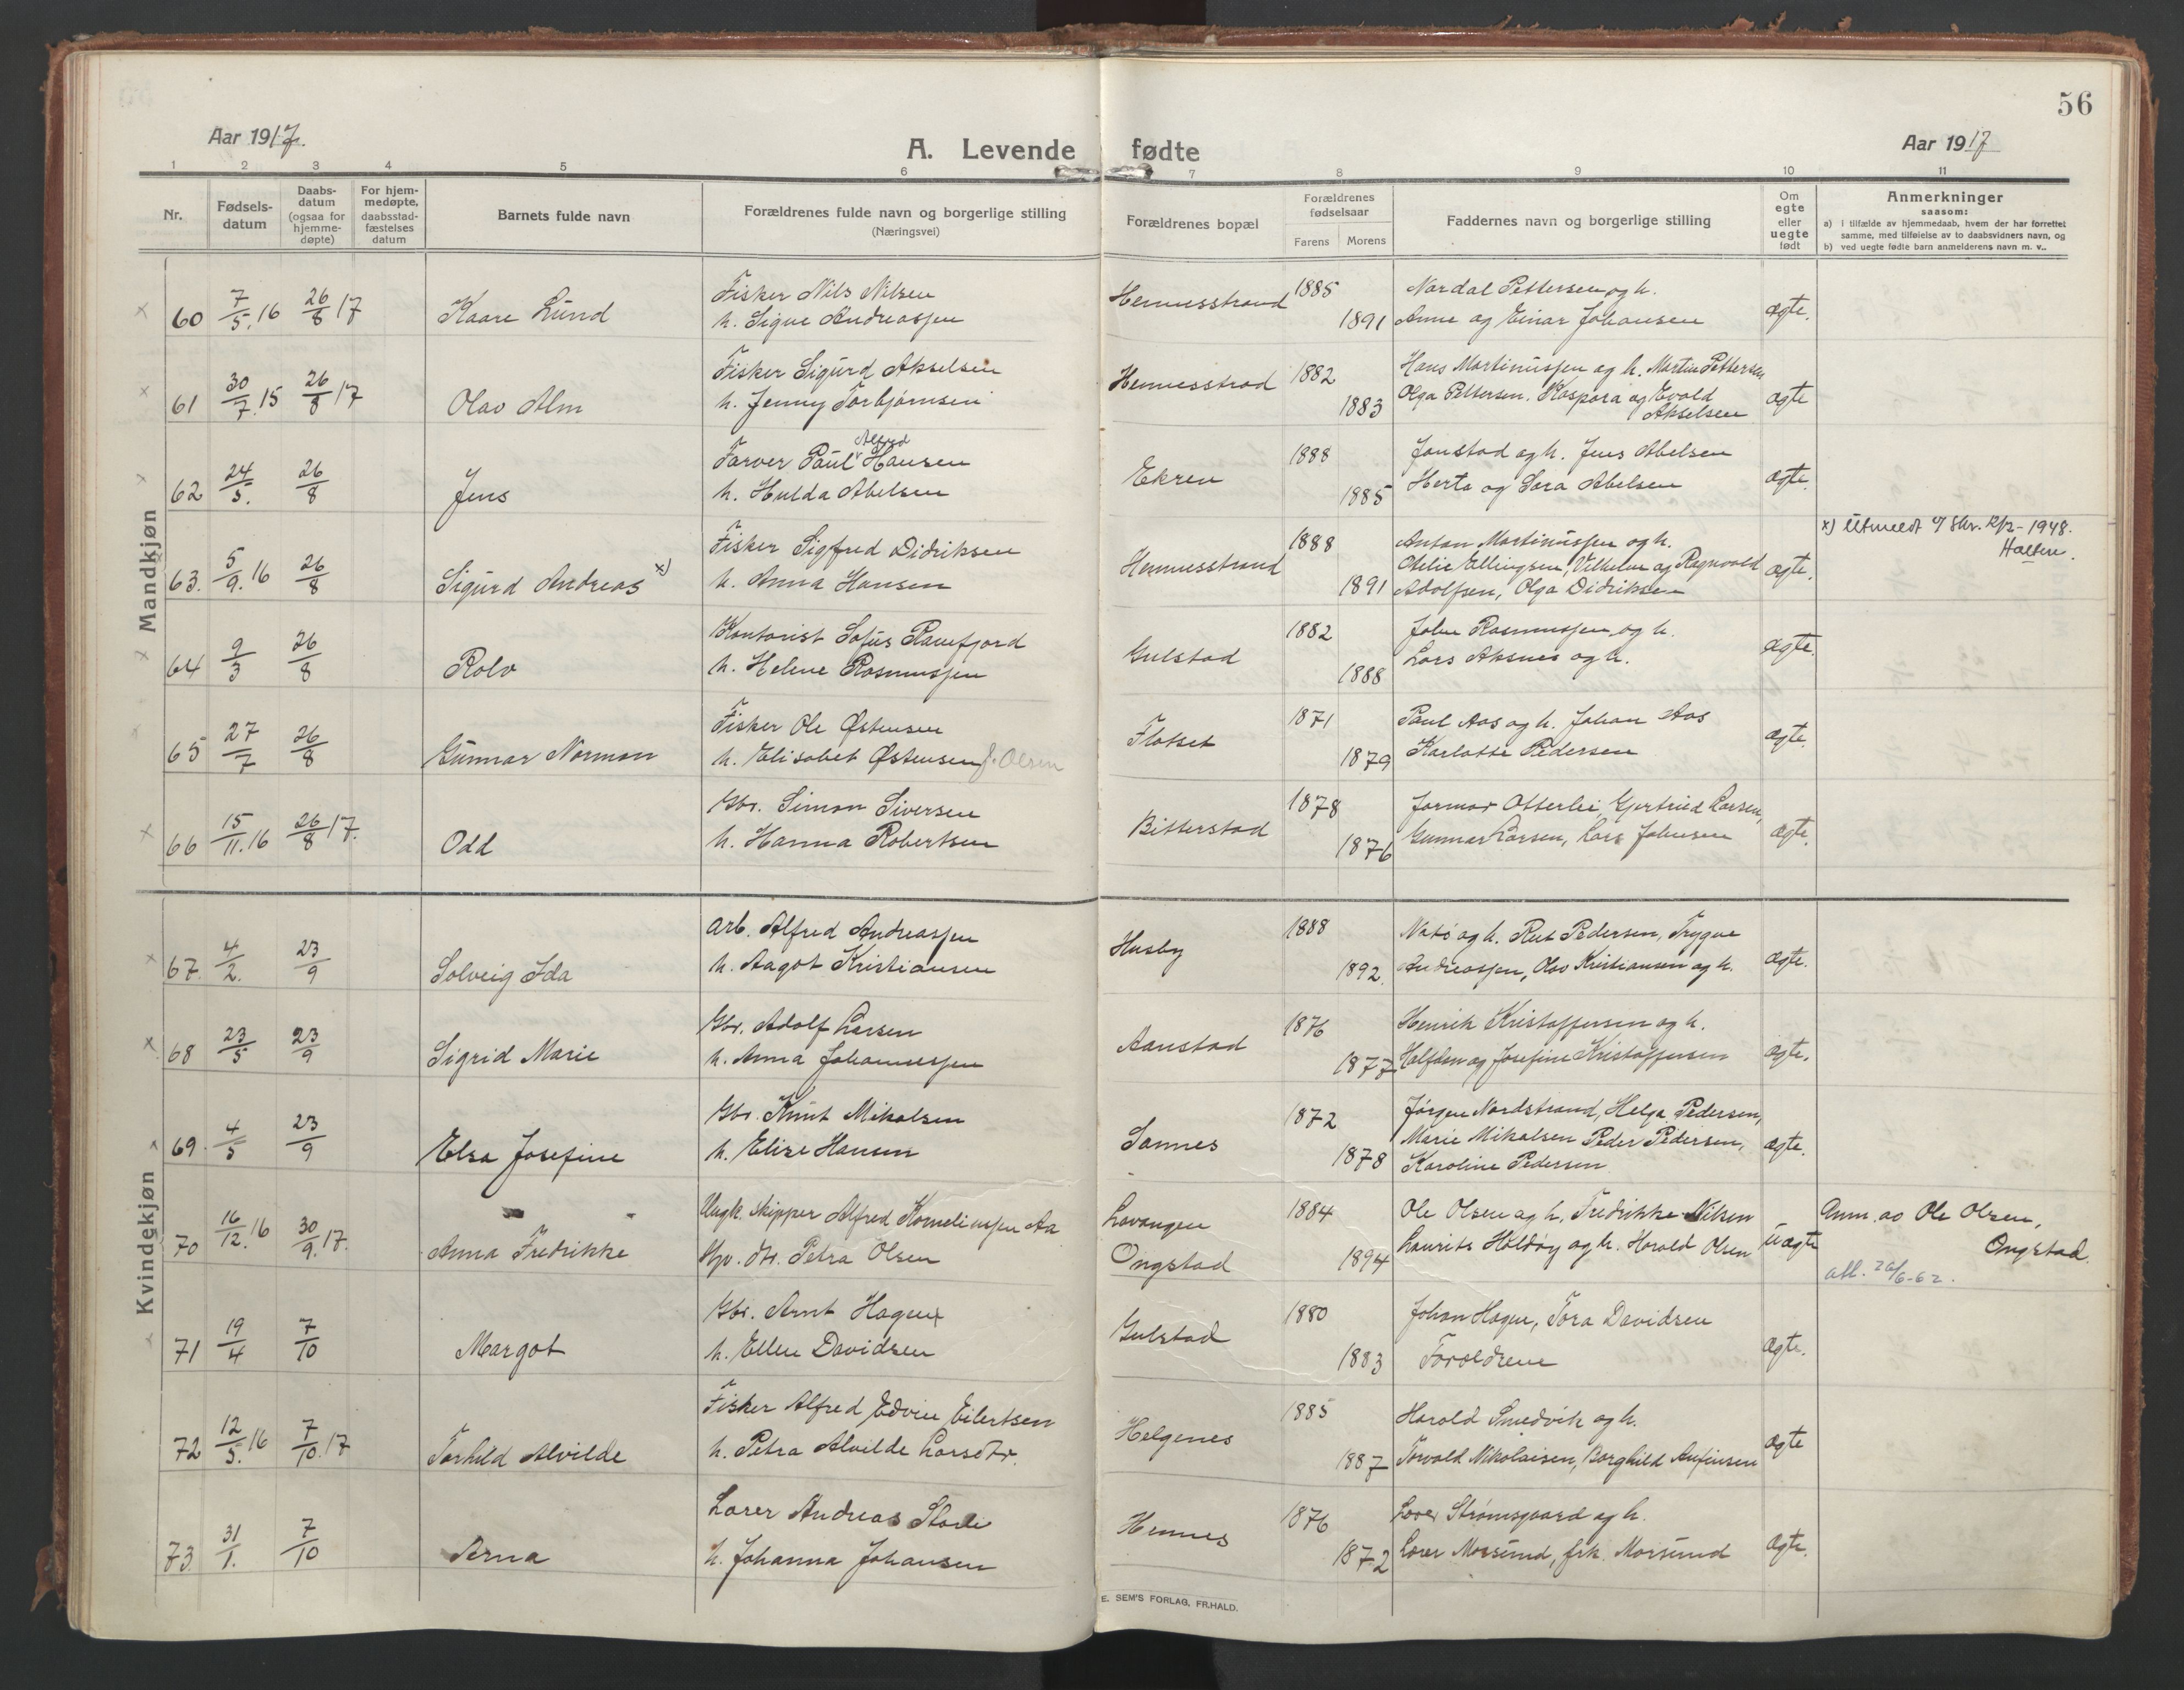 56
Aar 1917.
A. Levende fødte
Aar 1917
1 2 3 4 5 6 7 8 9 10 11
Nr.
Fødselsdatum
Daabsdatum (ogsaa for hjemmedøpte)
For hjemmedøpte, daabsstadfæstelses datum
Barnets fulde navn
Forældrenes fulde navn og borgerlige stilling (Næringsvei)
Forældrenes bopæl
Forældrenes fødselsaar
Farens Morens
Faddernes navn og borgerlige stilling
Om egte eller uegte født
Anmerkninger
saasom:
a) i tilfælde av hjemmedaab, hvem der har forrettet samme, med tilføielse av to daabsvidners navn, og
b) ved uegte fødte barn anmelderens navn m. v..
Mandkjøn
60 7/5.16 26/8 17 Kaare Lund
Fisker Nils Nilsen
h. Signe Andreassen
Hennesstrand 1885 1891
Nordal Pettersen og h.
Anne og Einar Johansen
ægte.
61 30/7.15 26/8 17 Olav Alm
Fisker Sigurd Akselsen
h. Jenny Torbjørnsen
Hennesstrad 1882 1883
Hans Martinussen og h. Martin Pettersen
Olga Pettersen. Kaspara og Evald
Akselsen
ægte
62 24/5. 26/8 Jens
Farver Paul Alfred Hansen
h. Hulda Abelsen
Ekren 1888 1885
Jonstad og h. Jens Abelsen
Herta og Sara Abelsen
ægte.
63. 5/9.16 26/8 Sigurd Andreas x)
Fisker Sigfred Didriksen
h. Anna Hansen
Hennesstrand 1888 1891
Anton Martinussen og h.
Otelie Ellingsen, Vilhelm og Ragnvald
Adolfsen, Olga Didriksen
ægte.
x) Utmeldt 1948.
Halten.
64 9/3 26/8 Rolv
Kontorist Sofus Ranefjord
h. Helene Rasmussen
Gulstad 1882 1888
John Rasmussen og h.
Lars Aksnes og h.
ægte.
65 27/7 26/8 Gunnar Norman
Fisker Ole Østensen
h. Elisabet Østensen f. Olsen
Flatset 1871 1879
Paul Aas og h. Johan Aas
Karlotte Pedersen
ægte.
66 15/11.16 26/8 17. Odd
Gbr. Simon Siversen
h. Hanna Robertsen
Bitterstad 1878 1876
Jarmar Otterlei Gjertrud Larsen,
Gunnar Larsen, Lars Johnsen
ægte.
Kvindekjøn
67. 4/2. 23/9 Solveig Ida
Arb. Alfred Andreassen
h. Aagot Kristiansen
Husby 1888 1892.
Natø og h. Rut Pedersen, Trygve
Andreassen, Olav Kristiansen og h.
ægte.
68 23/5 23/9 Sigrid Marie
Gbr. Adolf Larsen
h. Anna Johannessen
Aanstad 1876 1877
Henrik Kristoffersen og h.
Halfdan og Josefine Kristoffersen
ægte.
69. 4/5 23/9 Elsa Josefine
Gbr. Knut Mikalsen
h. Elise Hansen
Sannes 1872 1878
Jørgen Nordstrand, Helga Pedersen,
Marie Mikalsen Peder Pedersen,
Karoline Pedersen
ægte.
70 16/12.16 30/9.17. Anna Fredrikke
Ungk. skipper Alfred Korneliussen Aa
Petra Olsen
Lavangen
Ongstad
1884 1894
Ole Olsen og h. Fredrikke Nilsen
Laurits Holdøy og h. Harald Olsen
uægte
Anm. av Ole Olsen,
Ongstad.
att. 26/6-62.
71 19/4 7/10 Margot
Gbr. Arnt Hagen
h. Ellen Davidsen
Gulstad 1880 1883
Johan Hagen, Tora Davidsen
Foreldrene
ægte.
72 12/5.16 7/10.17 Torhild Alvilde
Fisker Alfred Edvin Eilertsen
h. Petra Alvilde Larsdtr.
Helgenes 1885 1887
Harald Smedvik og h.
Torvald Nikolaisen, Borghild Anfinsen
ægte
73. 31/1. 7/10 Arna
Lærer Andreas
h. Johanna Johansen
Hennes 1876 1872
Lærer Strømsgaard og h.
Lærer Morsund, frk. Morsund
ægte.
E. SEM'S FORLAG, FR.HALD.